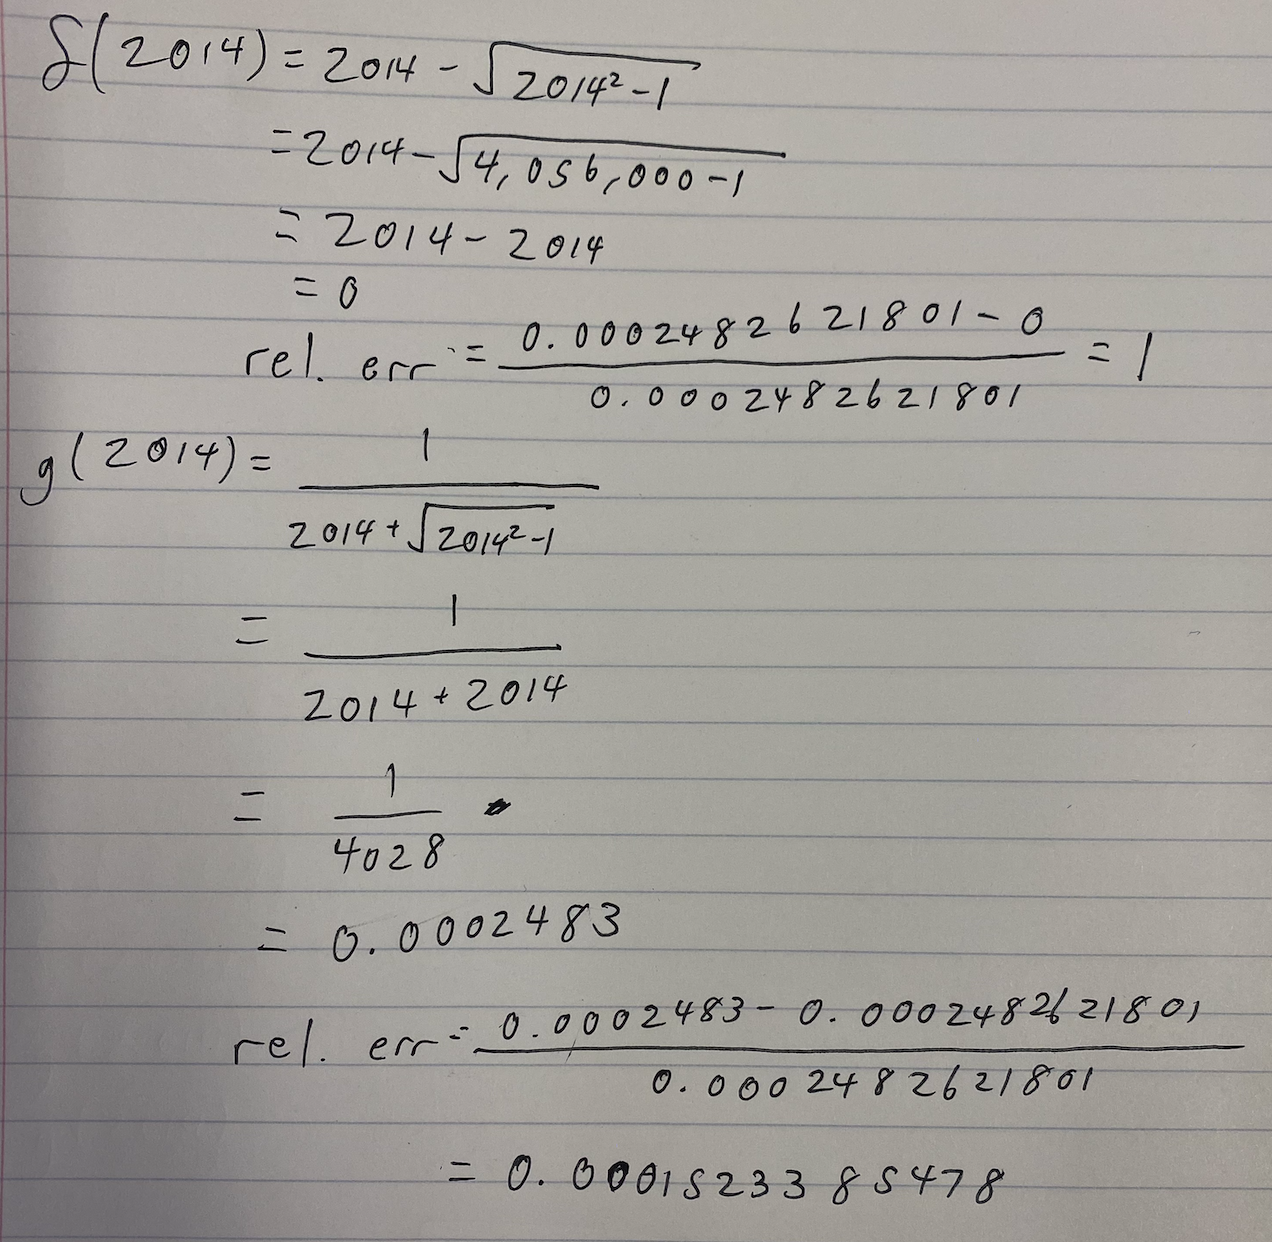 f(2014) = 2014 - √(2014² - 1)
= 2014 - √(4,056,000 - 1)
= 2014 - 2014
= 0
rel. err = (0.0002482621801 - 0) / 0.0002482621801 = 1
g(2014) = 1 / (2014 + √(2014² - 1))
= 1 / (2014 + 2014)
= 1 / 4028
= 0.0002483
rel. err = (0.0002483 - 0.0002482621801) / 0.0002482621801
= 0.0001523385478